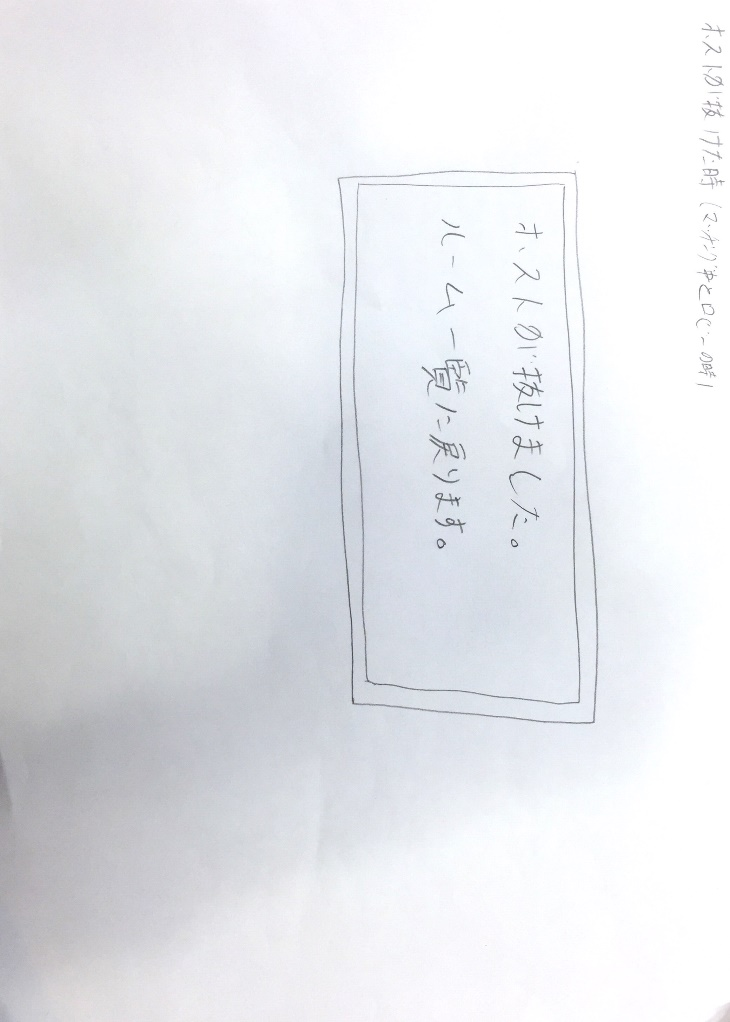 ホストが抜けた時（マッチング中とロビーの時）
ホストが抜けました。
ルーム一覧に戻ります。